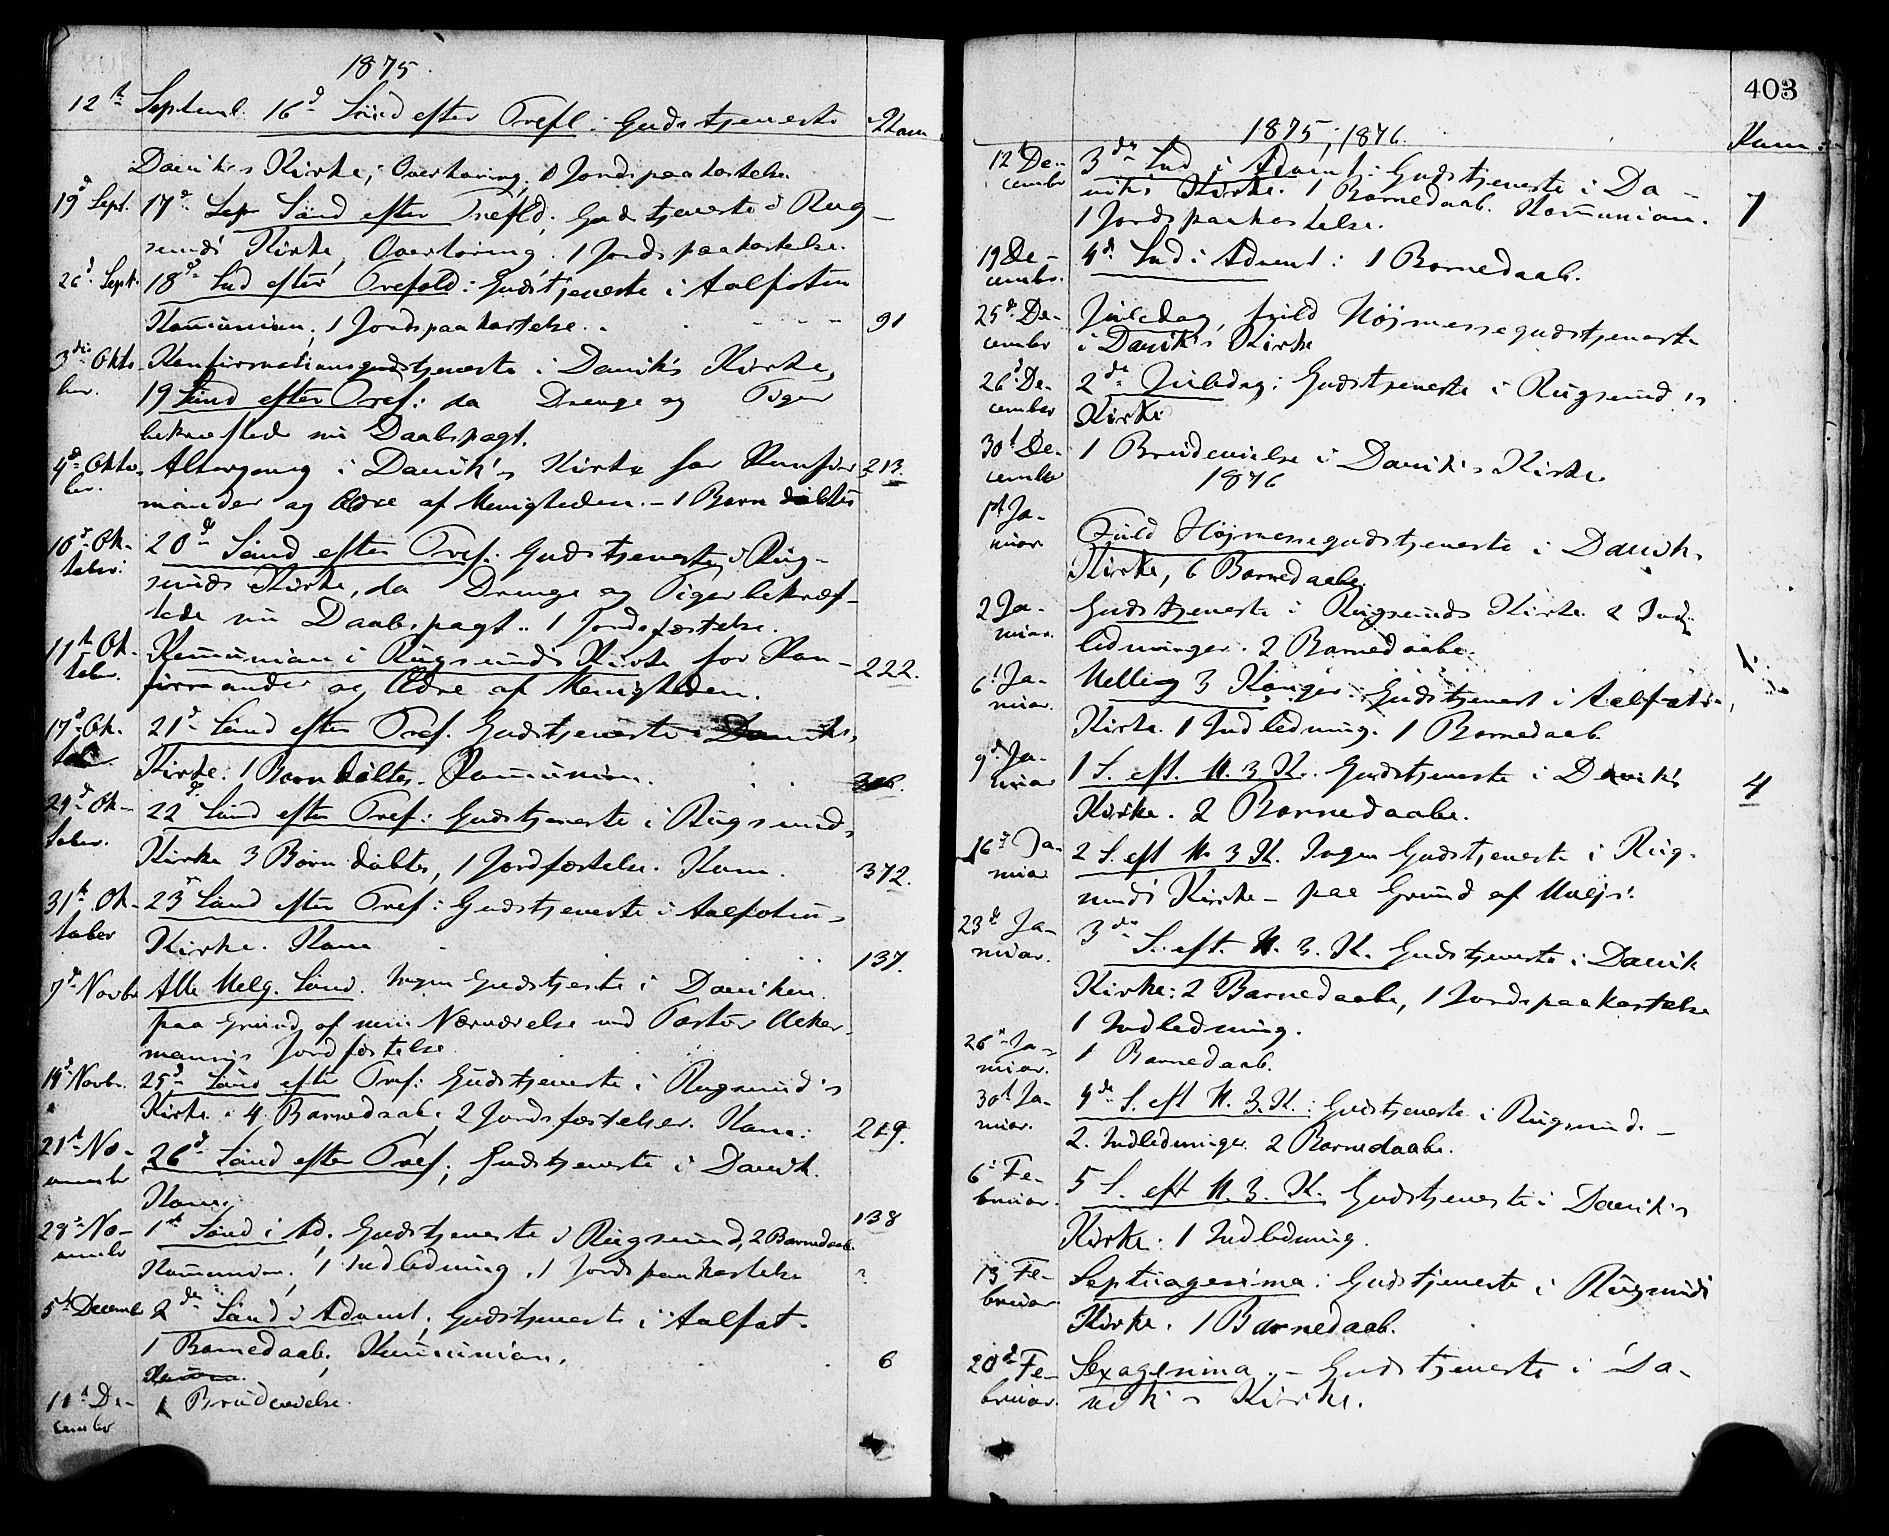 1875.
12te Septemb. 16de Sønd efter Trefl: Gudstjeneste Kom
Daviks Kirke; Overhøring, 1 Jordspaakastelse.
19de Sept. 17de Sønd efter Trefld; Gudstjeneste i Rug-
sunds Kirke, Overhøring. 1 Jordspaakastelse.
26de Sept. 18de Snd efter Trefold: Gudstjeneste i Aalfoten
Kommunion, 1 Jordspaakastelse. 91
3die Okto- Konfirmationsgudstjeneste i Daviks Kirke,
ber. 19 Sønd efter Tref: da Drenge og Piger
bekræftede sin Daabspagt.
4de Okto- Altergang i Davik's Kirke for Konfir- 213.
ber. mander og Ældre af Menigheden. - 1 Barn døbtes
10de Ok- 20de Sønd efter Tref: Gudstjeneste i Rug-
tober: sunds Kirke, da Drenge og Piger bekræf-
tede sin Daabspagt.. 1 Jordsfæstelse.
11te Ok- Kommunion i Rugsunds Kirke for Kon- 222.
tober. firmander og Ældre af Menigheden.
17de Ok- 21de Sønd efter Tref. Gudstjeneste i Daviks
tober. Kirke. 1 Barn døbtes. Kommunion.
24de Ok- 22de Sønd efter Tref: Gudstjeneste i Rugsunds
tober. Kirke 3 Børn døbtes, 1 Jordfæstelse. Kom. 372.
31te Ok- 23de Sønd efter Tref: Gudstjeneste i Aalfoten
tober Kirke. Kom 137.
7de Novbr Alle Helg. Sønd. Ingen Gudstjeste i Daviken
paa Grund af min Nærværelse ved Pastor Ucher-
manns Jordfæstelse.
14de Novbr. 25de Sønd efter Tref: Gudstjeneste i Rugsund's
Kirke: 4 Barnedaab, 2 Jordsfæstelser. Kom: 219.
21te No- 26de Sønd efter Tref; Gudstjeneste i Davik.
vember Kom: 138
28de No- 1ste Sønd i Ad. Gudstjeneste i Rugsund, 2 Barnedaab.
vember Kommunion, 1 Indledning, 1 Jordspaakastelse ?
5te Decembr 2den Sønd i Advent. Gudstjeneste i Aalfot.
1 Barnedaab, Kommunion. 6
11te De- 1 Brudevielse.
cember
403
1875, 1876. Kom:
12te De- 3die Snd i Advent: Gudstjeneste i Da-
cembr viks Kirke. 1 Barnedaab. Kommunion. 7
1 Jordspaakastelse.
19 De- 4de Snd i Advent: 1 Barnedaab.
cembr.
25de De- Juledag, fuld Højmessegudstjeneste
cember i Davik's Kirke
26de De- 2den Juledag: Gudstjeneste i Rugsunds
cember Kirke
30te De- 1 Brudevielse i Davik's Kirke.
cember 1876
1ste Ja-
nuar Fuld Højmessegudstjeneste i Daviks
Kirke, 6 Barnedaabe.
2 Ja- Gudstjeneste i Rugsunds Kirke. 2 Ind-
nuar. ledninger. 2 Barnedaabe.
6te Ja- Hellig 3 Konger: Gudstjenest i Aalfots
nuar. Kirke. 1 Indledning. 1 Barnedaab.
9de Ja- 1 S. eft. H. 3 K. Gudstjeneste i Davik's
nuar Kirke. 2 Barnedaabe. 4
16de Ja- 2 S. eft H. 3 K. Ingen Gudstjeneste i Rug-
nuar sunds Kirke - paa Grund af Uvejr.
23de Ja- 3die S. eft. H. 3. K. Gudstjeneste i Davik
nuar. Kirke: 2 Barnedaabe, 1 Jordspaakastelse
1 Indledning.
26de Ja- 1 Barnedaab.
nuar.
30te Ja- 4de S. eft H. 3. K.: Gudstjeneste i Rugsund. -
nuar. 2. Indledninger. 2 Barnedaabe.
6te Fe- 5 S. eft H. 3. K. Gudstjeneste i Davik's
bruar. Kirke: 1 Indledning.
13 Fe- Septuagesima: Gudstjeneste i Rugsunds
bruar. Kirke. 1 Barnedaab.
20de Fe- Sexagesima. - Gudstjeneste i Da-
bruar. vik's Kirke.